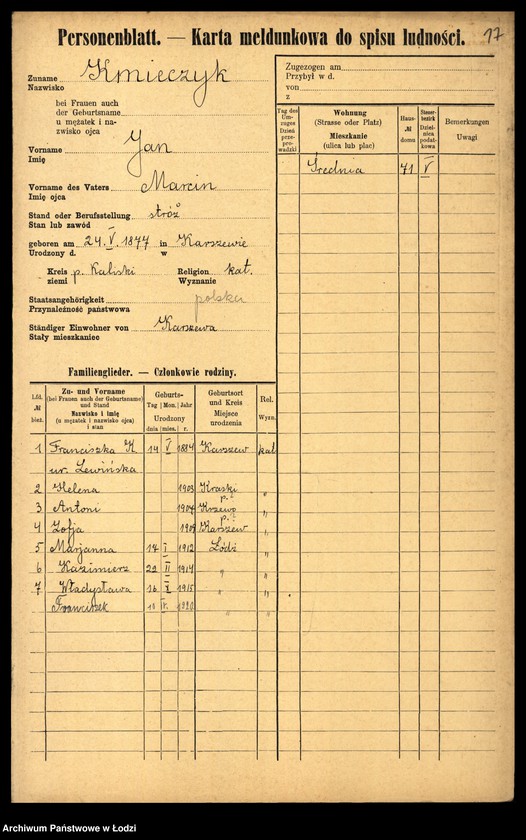 Personenblatt. — Karta meldunkowa do spisu ludności. 17
Zuname Kmieczyk
Nazwisko
bei Frauen auch
der Geburtsname
u mężatek i na-
zwisko ojca
Vorname Jan
Imię
Vorname des Vaters Marcin
Imię ojca
Stand oder Berufsstellung stróż
Stan lub zawód
geboren am 24. V. 1877 in Karszewie
Urodzony d. w
Kreis p. Kaliski Religion kat.
ziemi Wyznanie
Staatsangehörigkeit polska
Przynależność państwowa
Ständiger Einwohner von Karszewa
Stały mieszkaniec
Zugezogen am
Przybył w d.
von
z
Tag des Um-zuges Dzień prze-prowadzki
Wohnung (Strasse oder Platz) Mieszkanie (ulica lub plac)
Haus- № domu
Steuer-bezirk Dziel-nica podat-kowa
Bemerkungen Uwagi
Średnia 71 V
Familienglieder. — Członkowie rodziny.
Lfd. № bież.
Zu- und Vorname (bei Frauen auch der Geburtsname) und Stand Nazwisko i imię (u mężatek i nazwisko ojca) i stan
Geburts- Tag Mon. Jahr Urodzony dnia mies. r.
Geburtsort und Kreis Miejsce urodzenia
Rel. Wyzn.
1 Franciszka K. 14 V 1884 Karszew kat
ur. Lewińska
2 Helena 1903 Kraski "
3 Antoni 1904 p. : "
4 Zofja 1909 p. : Karszew "
5 Marjanna 14 I 1912 Łódź "
6 Kazimierz 22 II 1914 " "
7 Władysława 16 1915 " "
Franciszek 1920 " "
Archiwum Państwowe w Łodzi